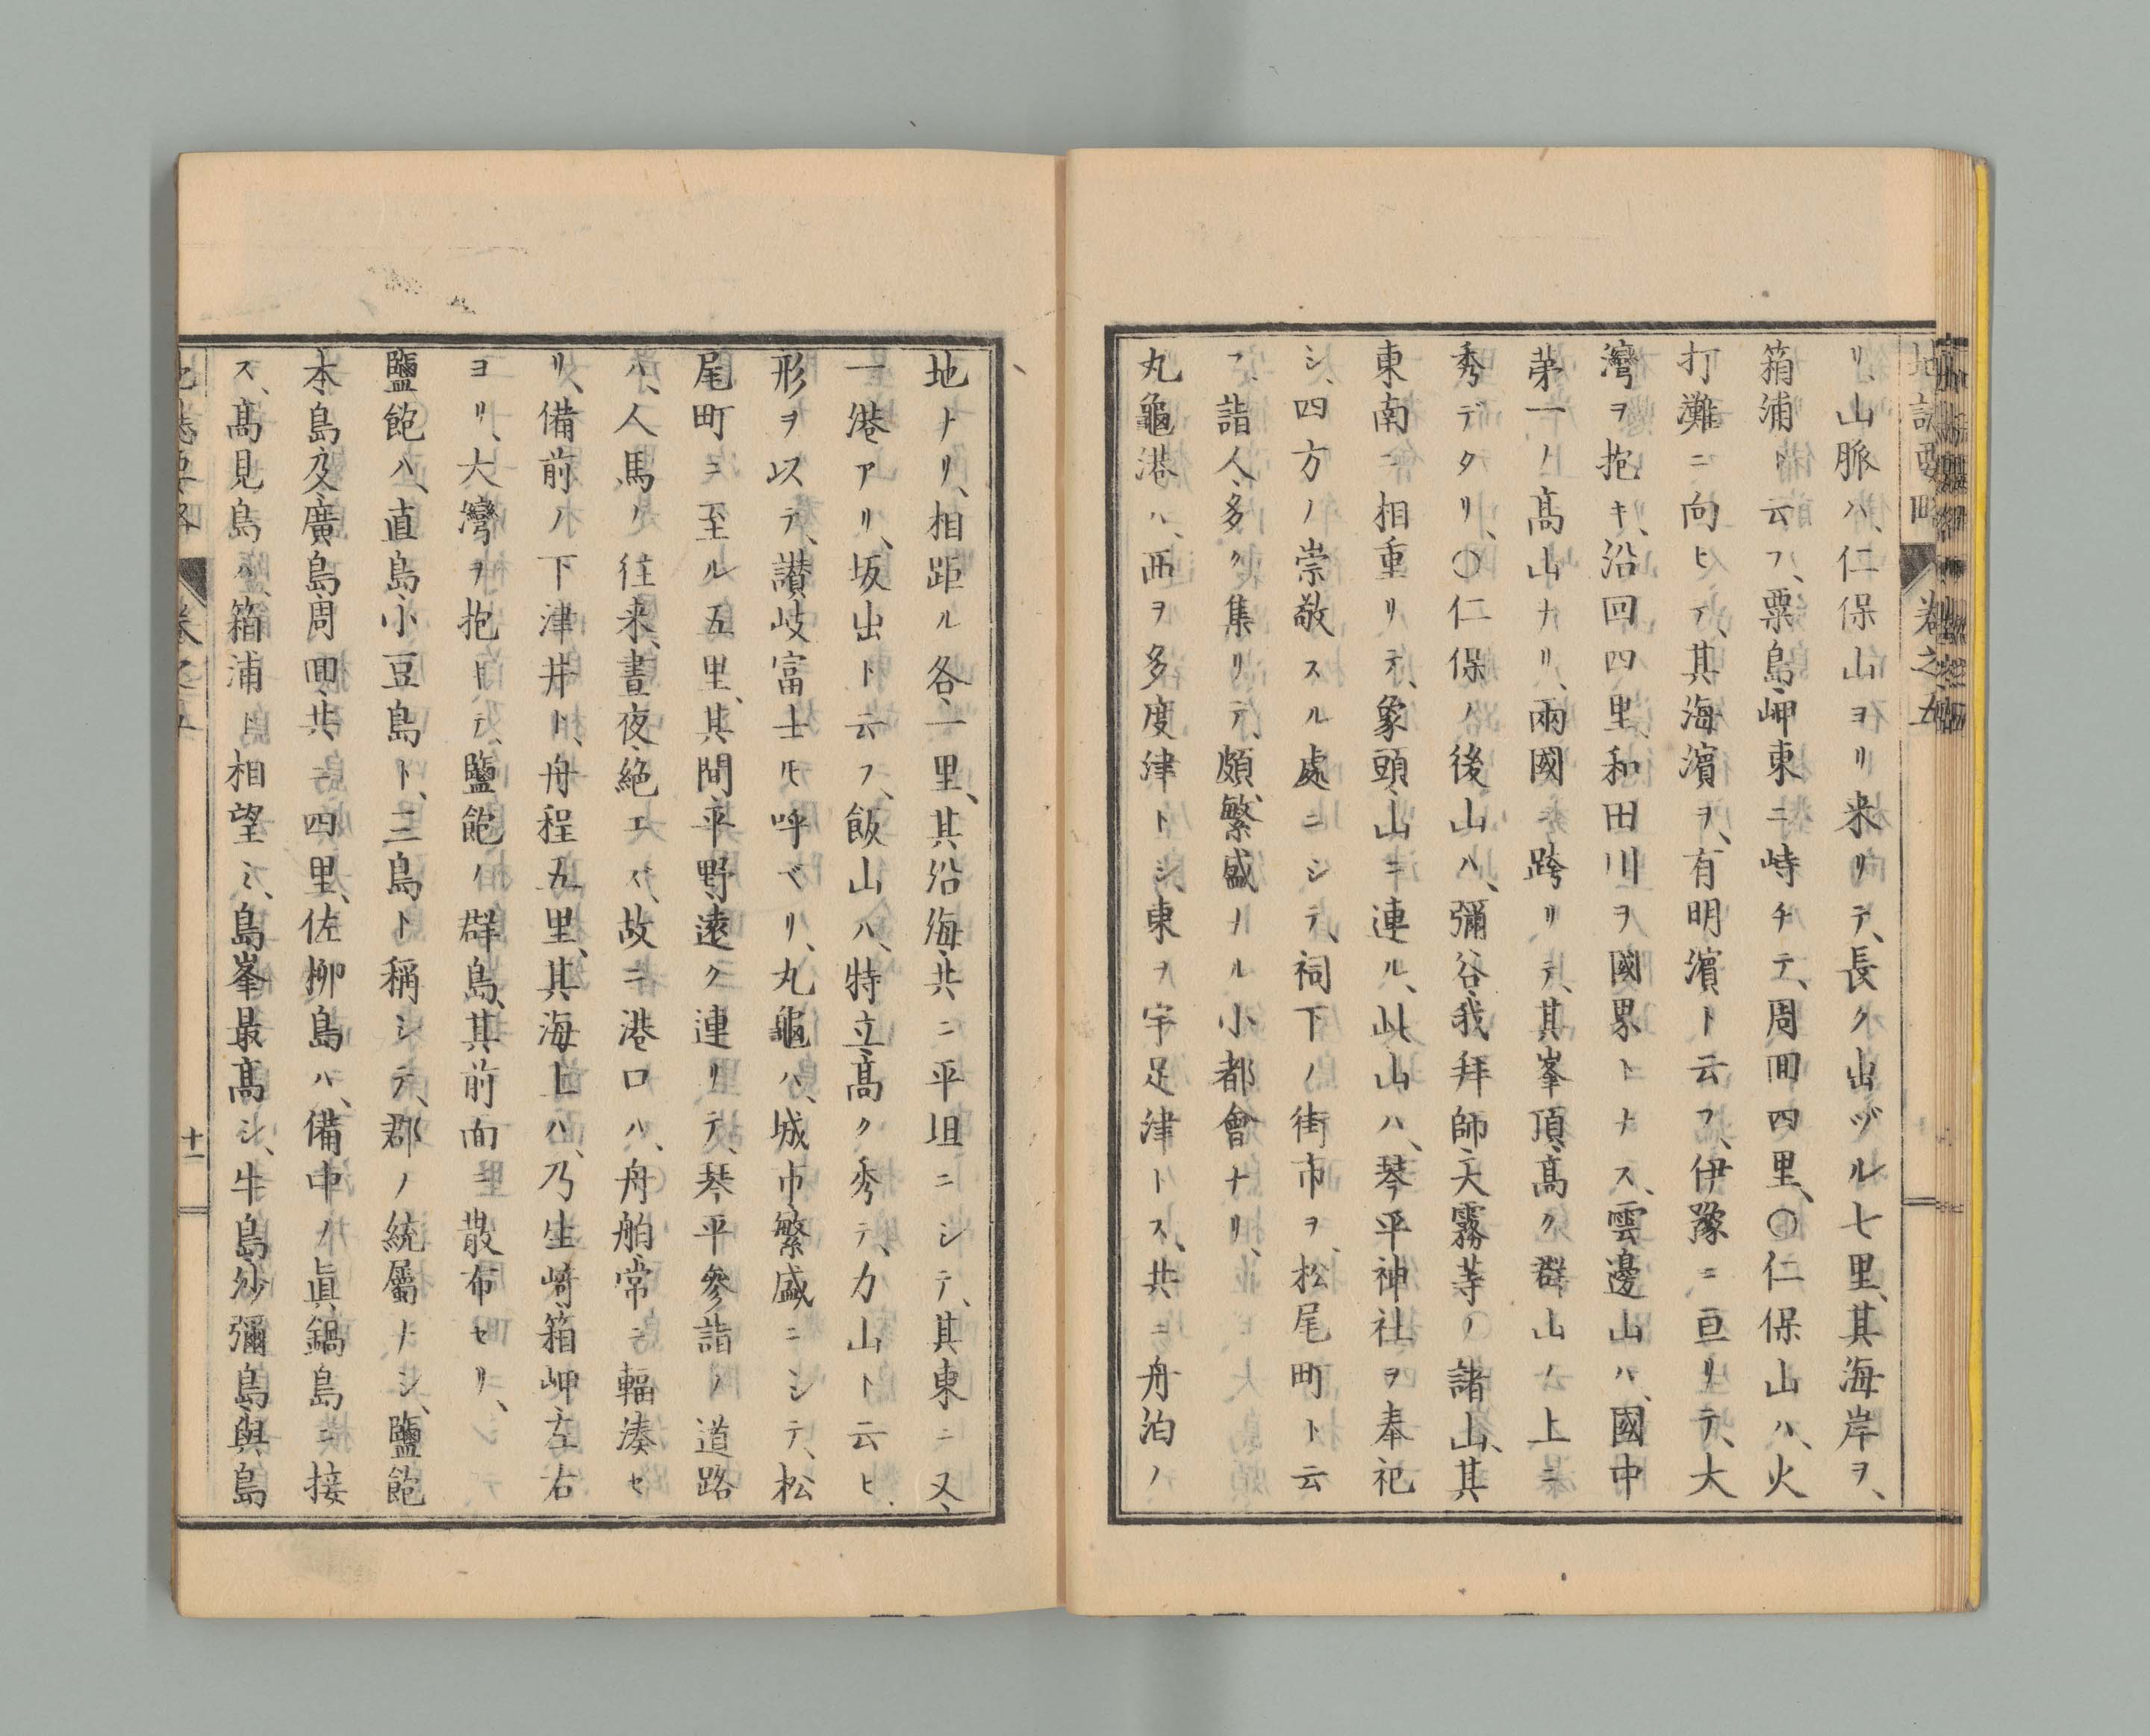 リ、山脈ハ、仁保山ヨリ来リテ、長ク出ヅル七里、其海岸ヲ、
箱浦ト云フ、粟島、岬東ニ峙チテ、周囘四里、〇仁保山ハ、火
打灘ニ向ヒテ、其海濵ヲ、有明濵ト云フ、伊豫ニ亘リテ、大
灣ヲ抱キ、沿回四里、和田川ヲ國界トナス、雲邊山ハ、國中
茅一ノ髙山ナリ、兩國ニ跨リテ、其峯頂、髙ク群山ノ上ニ
秀デタリ、〇仁保ノ後山ハ、彌谷、我拜師、大霧䓁ノ諸山、其
東南ニ相重リテ、象頭山ニ連ル、此山ハ、琴平神社ヲ奉祀
シ、四方ノ崇敬スル處ニシテ、祠下ノ街市ヲ、松尾町ト云
フ、詣人多ク集リテ、頗繁盛ナル小都會ナリ、
丸龜港ハ、西ヲ多度津トシ、東ヲ宇足津トス、共ニ舟泊ノ
地ナリ、相距ル各一里、其沿海、共ニ平坦ニシテ、其東ニ又、
一港アリ、坂出ト云フ、飯山ハ、特立髙ク秀テ、力山ト云ヒ、
形ヲ以テ、讃岐富士𪜈呼ベリ、丸龜ハ、城市繁盛ニシテ、松
尾町ニ至ル五里、其間、平野遠ク連リテ、琴平參詣ノ道路
ハ、人馬ノ往来、晝夜絶エズ、故ニ港口ハ、舟舶常ニ輻湊セ
リ、備前ノ下津井ト、舟程五里、其海上ハ、乃生﨑、箱岬左右
ヨリ、大灣ヲ抱ヒテ、鹽飽ノ群島、其前面ニ散布セリ、
鹽飽ハ、直島、小豆島ト、三島ト稱シテ、郡ノ統屬ナシ、鹽飽
本島及廣島、周囘共ニ四里、佐柳島ハ、備中ノ眞鍋島ニ接
ス、髙見島ハ、箱浦ト相望ミ、島峯最髙シ、牛島、沙彌島、與島
地誌要略 卷之五 十一